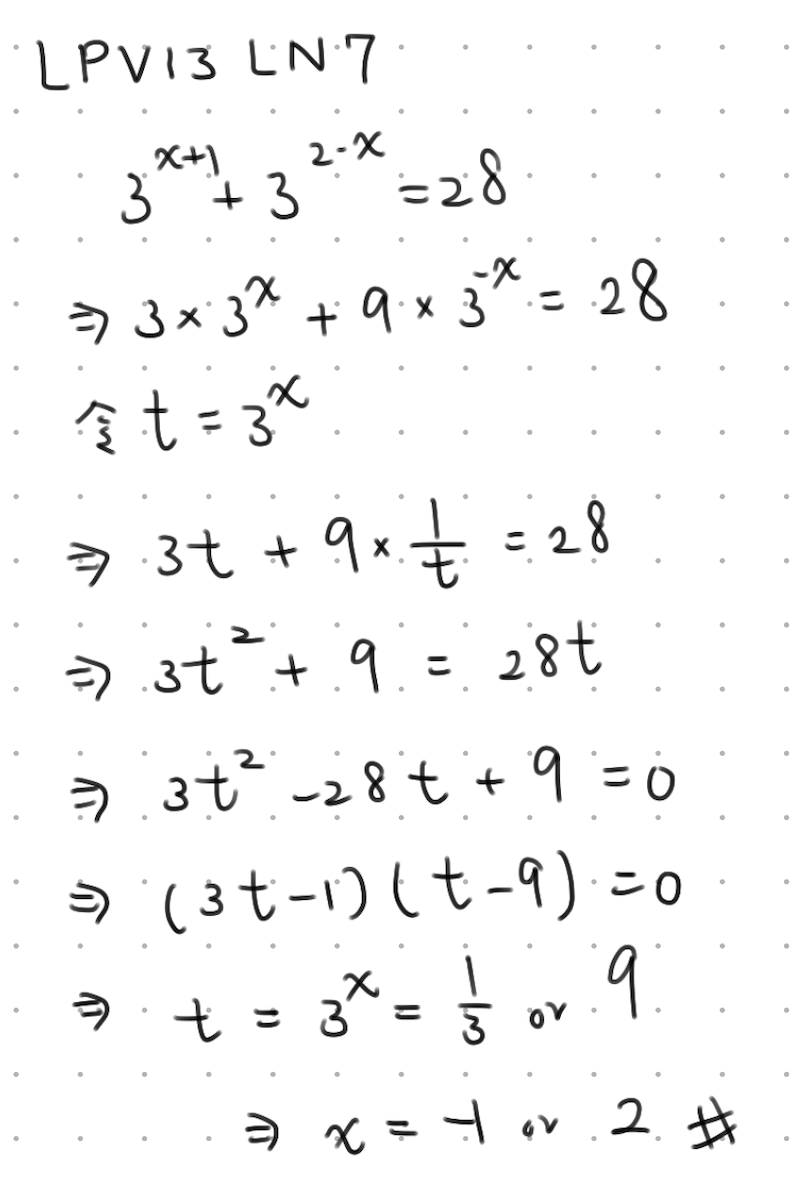 LPV13 LN7
3^{x+1} + 3^{2-x} = 28
⇒ 3 × 3^x + 9 × 3^{-x} = 28
令 t = 3^x
⇒ 3t + 9 × 1/t = 28
⇒ 3t² + 9 = 28t
⇒ 3t² - 28t + 9 = 0
⇒ (3t-1)(t-9) = 0
⇒ t = 3^x = 1/3 or 9
⇒ x = -1 or 2 #